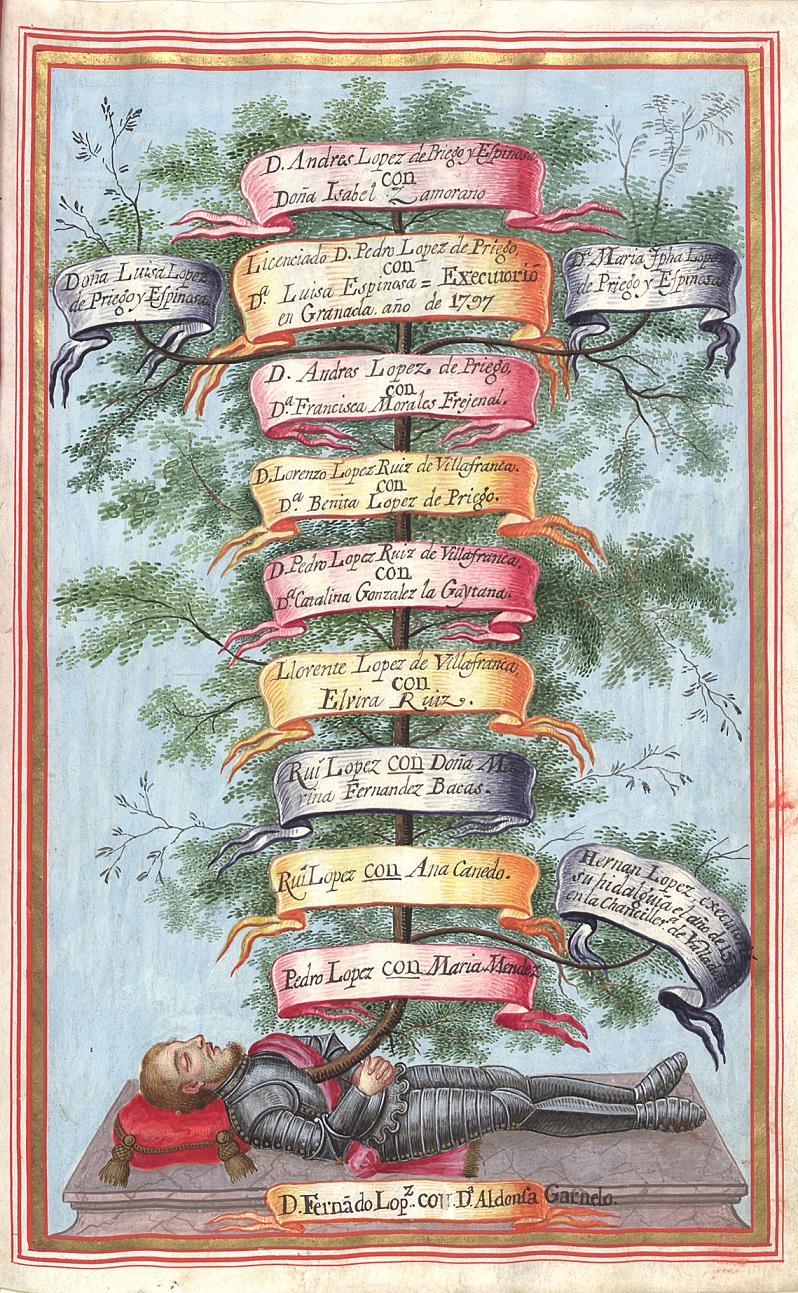 D. Andres Lopez de Priego y Espinosa
con
Doña Isabel Zamorano
Licenciado D. Pedro Lopez de Priego,
con
D.ª Luisa Espinosa = Executorió
en Granada, año de 1797
Doña Luisa Lopez
de Priego y Espinosa
D.ª Maria Jpha Lopez
de Priego y Espinosa
D. Andres Lopez de Priego,
con
D.ª Francisca Morales Frejenal.
D. Lorenzo Lopez Ruiz de Villafranca.
con
D.ª Benita Lopez de Priego.
D. Pedro Lopez Ruiz de Villafranca.
con
D.ª Catalina Gonzalez la Gaytana.
Llorente Lopez de Villafranca,
con
Elvira Ruiz.
Rui Lopez con Doña Ma
rina Fernandez Bacas.
Rui Lopez con Ana Canedo.
Hernan Lopez,
su hidalguia el año de
en la Chanciller.ª de
Pedro Lopez con Maria Mendez
D. Fernãdo Lop.z con D.ª Aldonſa Garnelo.